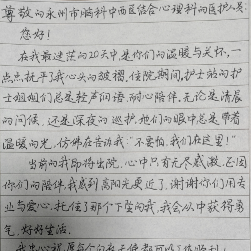 尊敬的永州市脑科中西医结合心理科的医护人员:
您好!
在我最迷茫的20天中是你们的温暖与关怀,一
点点抚平了我心头的皱褶,住院期间,护士站的护
士姐姐们总是轻声问语,耐心陪伴,无论是清晨
的问候,还是深夜的巡护,她们的眼中总是带着
温暖的光,仿佛在告诉我"不要怕,我们在这里!"
当前的我即将出院,心中只有无尽感激,是因
你们的陪伴,我感到离阳光更近了,谢谢你们用专
业与爱心,托住了那个下坠的我,我会从中获得勇
气,好好生活。